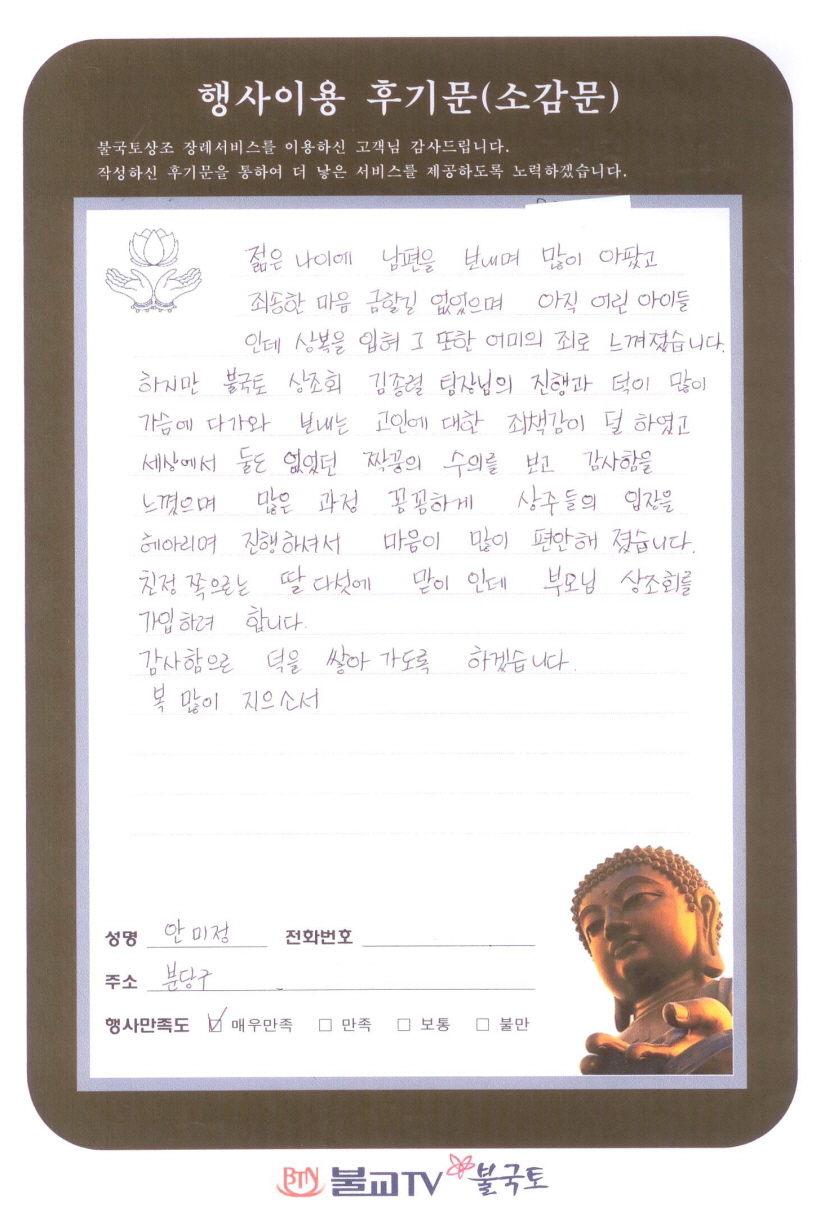 행사이용 후기문(소감문)
불국토상조 장례서비스를 이용하신 고객님 감사드립니다.
작성하신 후기문을 통하여 더 낳은 서비스를 제공하도록 노력하겠습니다.
젊은 나이에 남편을 보내며 많이 아팠고
죄송한 마음 금할길 없었으며 아직 어린 아이들
인데 상복을 입혀 그 또한 어미의 죄로 느껴졌습니다.
하지만 불국토 상조회 김종렬 팀장님의 진행과 덕이 많이
가슴에 다가와 보내는 고인에 대한 죄책감이 덜 하였고
세상에서 둘도 없었던 짝꿍의 수의를 보고 감사함을
느꼈으며 많은 과정 꽁꼼하게 상주들의 입장을
헤아리며 진행하셔서 마음이 많이 편안해 졌습니다.
친정 쪽으로는 딸 다섯에 맏이 인데 부모님 상조회를
가입하려 합니다.
감사함으로 덕을 쌓아 가도록 하겠습니다.
복 많이 지으소서
성명 안미정 전화번호
주소 분당구
행사만족도 ☑ 매우만족 □ 만족 □ 보통 □ 불만
BTN 불교TV 불국토